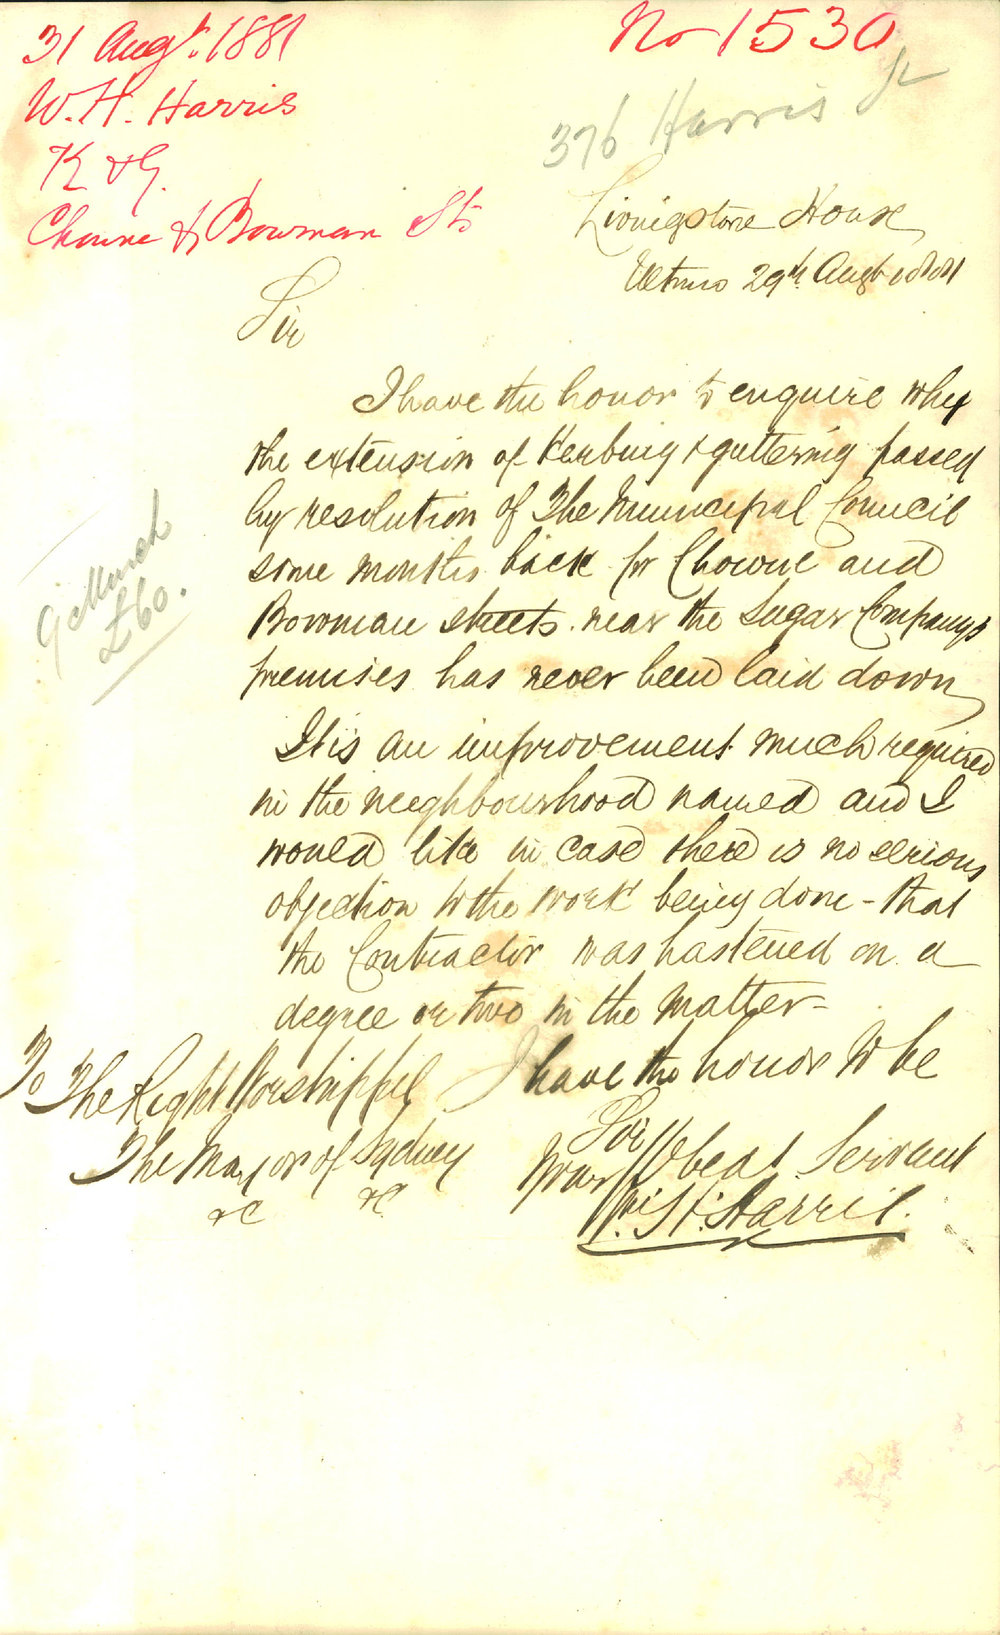 31 Augt. 1881
W. H. Harris
K & G.
Chowne & Bowman Sts
No 1530
376 Harris St
Livingstone House
Ultimo 29th Augt 1881
Sir
I have the honor to enquire why
the extension of Kerbing & guttering passed
by resolution of The Municipal Council
some months back for Chowne and
Bowman streets near the Sugar Company's
premises has never been laid down
It is an improvement much required
in the neighbourhood named and I
would like in case there is no serious
objection to the work being done - that
the Contractor was hastened on a
degree or two in the matter -
I have the honor to be
Sir
Your Obedt Servant
W. H. Harris.
To The Right Worshipful
The Mayor of Sydney
&c &c
G Murch
£60.